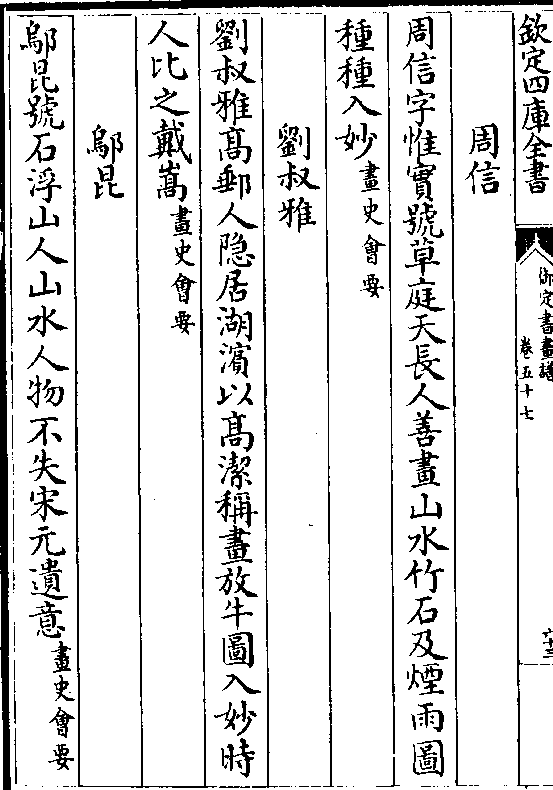 欽定四庫全書
御定書畫譜
卷五十七
六十三
周信
周信字惟實號草庭天長人善畫山水竹石及煙雨圖
種種入妙畫史會要
劉叔雅
劉叔雅髙郵人隐居湖濵以髙潔稱畫放牛圖入妙時
人比之戴嵩畫史會要
鄔昆
鄔昆號石浮山人山水人物不失宋元遺意畫史會要